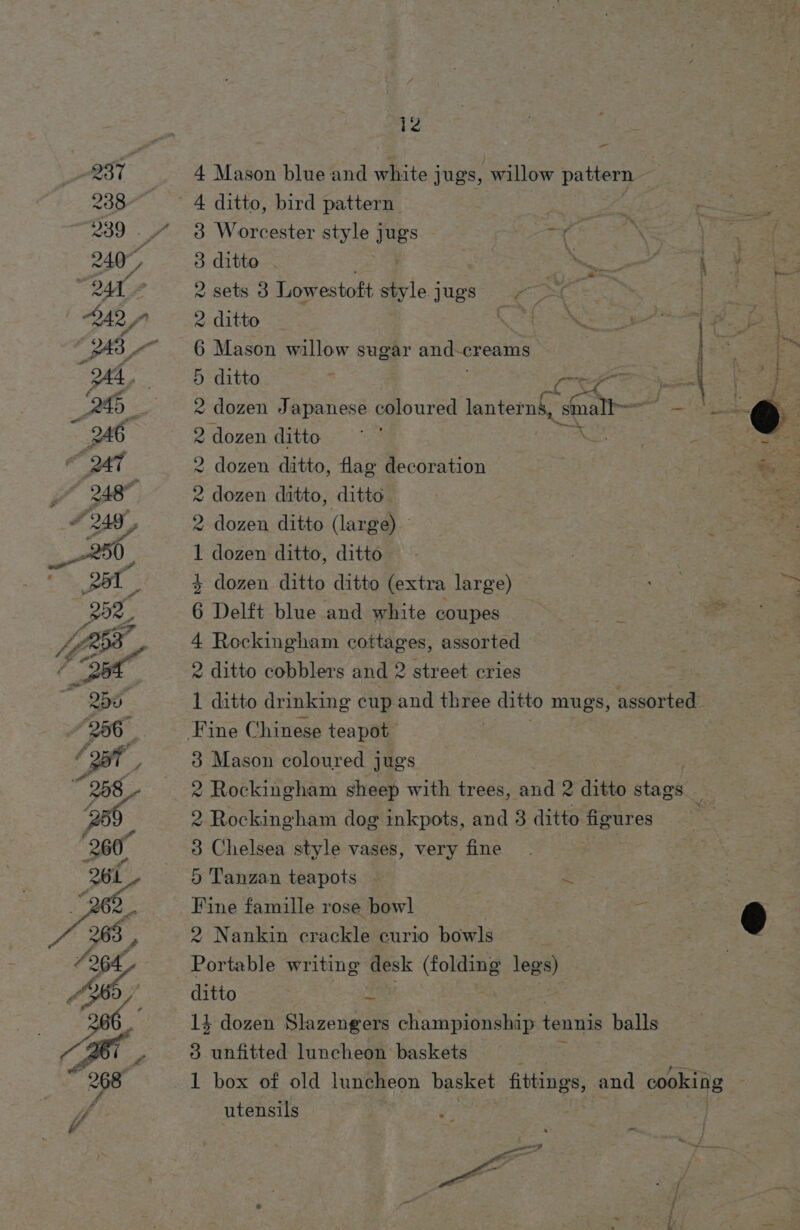 12
237 4 Mason blue and white jugs, willow pattern
238 4 ditto, bird pattern
239 3 Worcester style jugs
240 3 ditto
241 2 sets 3 Lowestoft style jugs
242 2 ditto
243 6 Mason willow sugar and creams
244 5 ditto
245 2 dozen Japanese coloured lanterns, small
246 2 dozen ditto
247 2 dozen ditto, flag decoration
248 2 dozen ditto, ditto
249 2 dozen ditto (large)
250 1 dozen ditto, ditto
251 ½ dozen ditto ditto (extra large)
252 6 Delft blue and white coupes
253 4 Rockingham cottages, assorted
254 2 ditto cobblers and 2 street cries
255 1 ditto drinking cup and three ditto mugs, assorted
256 Fine Chinese teapot
257 3 Mason coloured jugs
258 2 Rockingham sheep with trees, and 2 ditto stags
259 2 Rockingham dog inkpots, and 3 ditto figures
260 3 Chelsea style vases, very fine
261 5 Tanzan teapots
262 Fine famille rose bowl
263 2 Nankin crackle curio bowls
264 Portable writing desk (folding legs)
265 ditto
266 1½ dozen Slazengers championship tennis balls
267 3 unfitted luncheon baskets
268 1 box of old luncheon basket fittings, and cooking
utensils